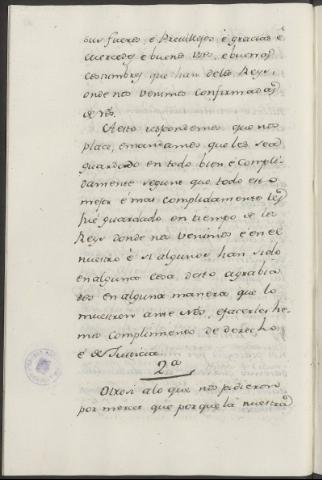 sus fueros, é Previllejos é gracias é
mercedes é buenos usos, é buenas
costumbres que han delos Reyes,
onde nos venimos confirmadas
de Nos.
A esto respondemos que nos
place, é mandamos que les sea
guardado en todo bien é compli-
damente segunt que todo esto
mejor é mas complidamente les
fué guardado en tiempo de los
Reyes donde nos venimos é en el
nuestro é si algunos han sido
en alguna cosa desto agravia-
dos en alguna manera que lo
muestren ante Nós, é facerles he-
mos complimento de derecho
é de Justicia.
2ª
Otrosi alo que nos pidieron
por merced que por que la nuestra